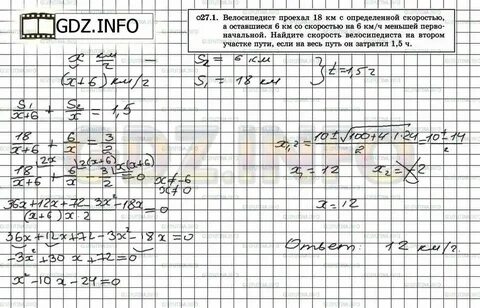 GDZ.INFO
027.1. Велосипедист проехал 18 км с определенной скоростью,
а оставшиеся 6 км со скоростью на 6 км/ч меньшей перво-
начальной. Найдите скорость велосипедиста на втором
участке пути, если на весь путь он затратил 1,5 ч.
x км/ч - S₂ = 6 км
(x+6) км/ч S₁ = 18 км } t = 1,5 ч
S₁/(x+6) + S₂/x = 1,5
18/(x+6) + 6/x = 3/2
18/(x+6) + 6/x - 3/2 = 0 x ≠ -6
x ≠ 0
(36x+12x+72-3x²-18x)/((x+6)x·2) = 0
36x+12x+72-3x²-18x=0
-3x²+30x+72=0
x²-10x-24=0
x₁,₂ = (10±√(100+4·1·24))/2 = (10±14)/2
x₁ = 12 x₂ = -2
x = 12
Ответ: 12 км/ч.
GDZ.INFO